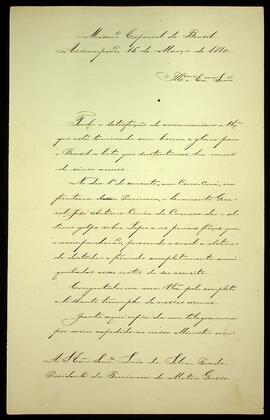 Missão Especial do Brasil
Assumpção, 15 de Março de 1870.
Illmo. e Exmo. Snr.
Tenho a satisfação de communicar a V. Ex.
que está terminada com honra e gloria para
o Brasil a luta que sustentamos ha mais
de cinco annos.
No dia 1º do corrente, em Cerro-Corá, na
fronteira dessa Provincia, o bravo General
José Antonio Corrêa da Camara deu o ul-
timo golpe sobre Lopez e as poucas forças que
o acompanhavão, pondo o exercito
do dictador e ficando completamente aniqui-
lados esses restos de seu exercito.
Congratulo-me com V. Ex. pelo completo
e brilhante triumpho de nossas armas.
Junto aqui copia de um telegramma
por mim expedido ao nosso Ministro em
A S. Ex. o Senr. Luiz da Silva Prado
Presidente da Provincia de Matto Grosso